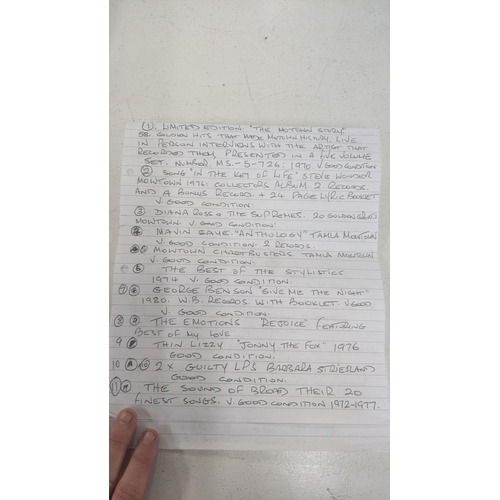 ① LIMITED EDITION. "THE MOTOWN STORY"
58. GOLDEN HITS THAT MADE MOTOWN HISTORY. LIVE
IN PERSON INTERVIEWS WITH THE ARTIST THAT
RECORDED THEM PRESENTED IN A FIVE VOLUME
SET. NUMBER MS-5-726: 1970 V GOOD CONDITION
② SONG "IN THE KEY OF LIFE" STEVE WONDER
MOWTOWN 1976: COLLECTORS ALBUM 2 RECORDS
AND A BONUS RECORD. + 24 PAGE LYRIC BOOKLET
V. GOOD CONDITION:
③ DIANA ROSS & THE SUPREMES. 20 GOLDEN GREATS
MOWTOWN. V. GOOD CONDITION.
4 MAVIN GAYE "ANTHOLOGY" TAMLA MOWTOWN
V. GOOD CONDITION. 2 RECORDS.
MOWTOWN CHARTBUSTERS TAMLA MOWTOWN
V. GOOD CONDITION:
⑥ THE BEST OF THE STYLISTICS
1974 V. GOOD CONDITION.
⑦ GEORGE BENSON "GIVE ME THE NIGHT"
1980. W.B. RECORDS. WITH BOOKLET. V GOOD
V. GOOD CONDITION.
⑧ THE EMOTIONS "REJOICE" FEATURING
BEST OF MY LOVE
9 THIN LIZZY "JONNY THE FOX" 1976
GOOD CONDITION.
10 ⑩ 2 X GUILTY LPS BARBARA STRIESAND
GOOD CONDITION.
⑪ THE SOUND OF BREAD THEIR 20
FINEST SONGS. V. GOOD CONDITION 1972-1977.